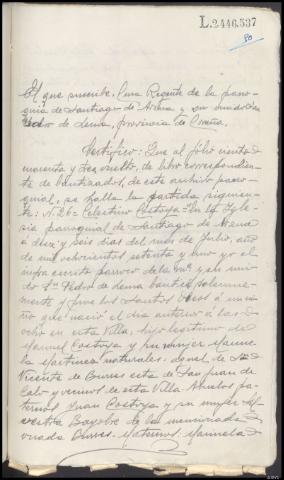 L.2446,537
El que suscribe, Cura Regente de la parro-
quia de Santiago de Arzua y su unido San
Pedro de Lema, provincia de Coruña.
Certifico: Que al folio ciento
noventa y tres vuelto, de libro correspondien-
te de bautizados, de este archivo parro-
quial, se halla la partida siguien-
te: N. 26 = Celestino Castoya = En la Igle-
sia parroquial de Santiago de Arzua
a diez y seis dias del mes de Julio, año
de mil ochocientos setenta y uno yo el
infrascrito parroco de la mª y su uni-
do Sn Pedro de Lema bauticé solemne-
mente y puse los Santos Oleos á un ni-
ño que nació el dia anterior á las
ocho en esta Villa, hijo legitimo de
Manuel Castoya y su mujer Manue-
la Martinez naturales: aquel de Sn
Vicente de Burres esta de San Juan de
Calo y vecinos de esta Villa Abuelos pa-
ternos, Juan Castoya y su mujer Sil-
vestra Bayobe de la mencionada
Burres. Maternos, Manuela